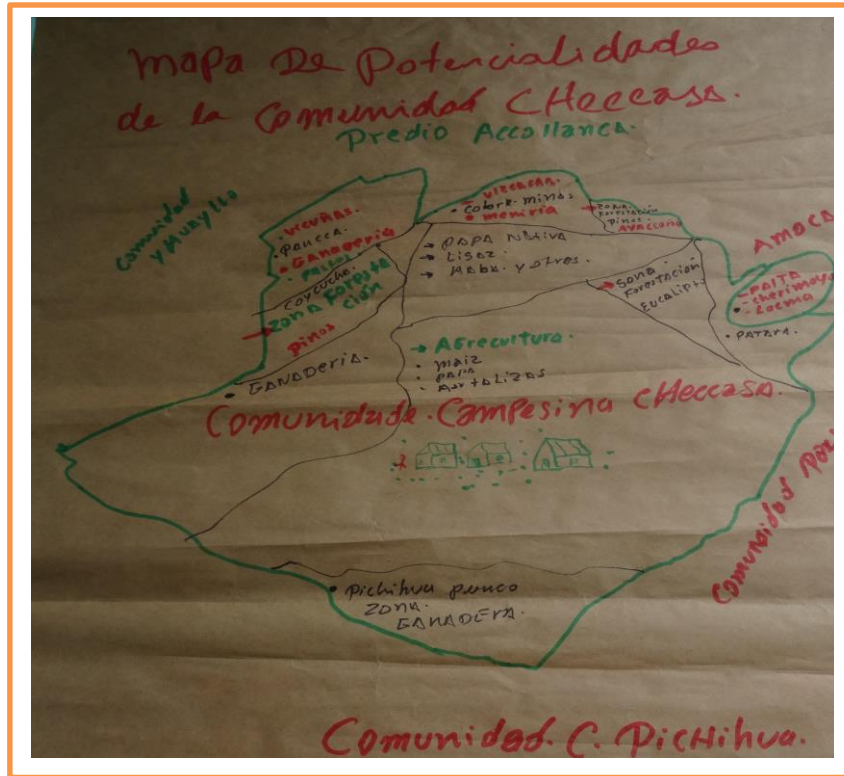 Mapa De Potencialidades
de la Comunidad CHeccasa.
Predio Accollanca.
Comunidad
y Huayllo
- Vicuñas.
• Paucca.
• Ganaderia
• Pastos
Coycucho
→ Zona Foresta
ción
pinos
- Vizcacas.
• Cobre-minas
• Meniria
→ Zona.
Forestación
Pinos.
Ayaccoño
→ papa Nativa
→ Lisaz.
→ Haba. y otros.
→ Sona.
Forestación
Eucalipto
AMOCA
- Palta
- cherimoya
- Locma
• Patapa.
• Ganaderia.
→ Agrecultura.
• maiz
• papa
• Aortalizas
Comunidade. Campesina cHeccasa.
Comunidad
• Pichihua punco
Zona.
Ganadera.
Comunidad. C. PicHihua.